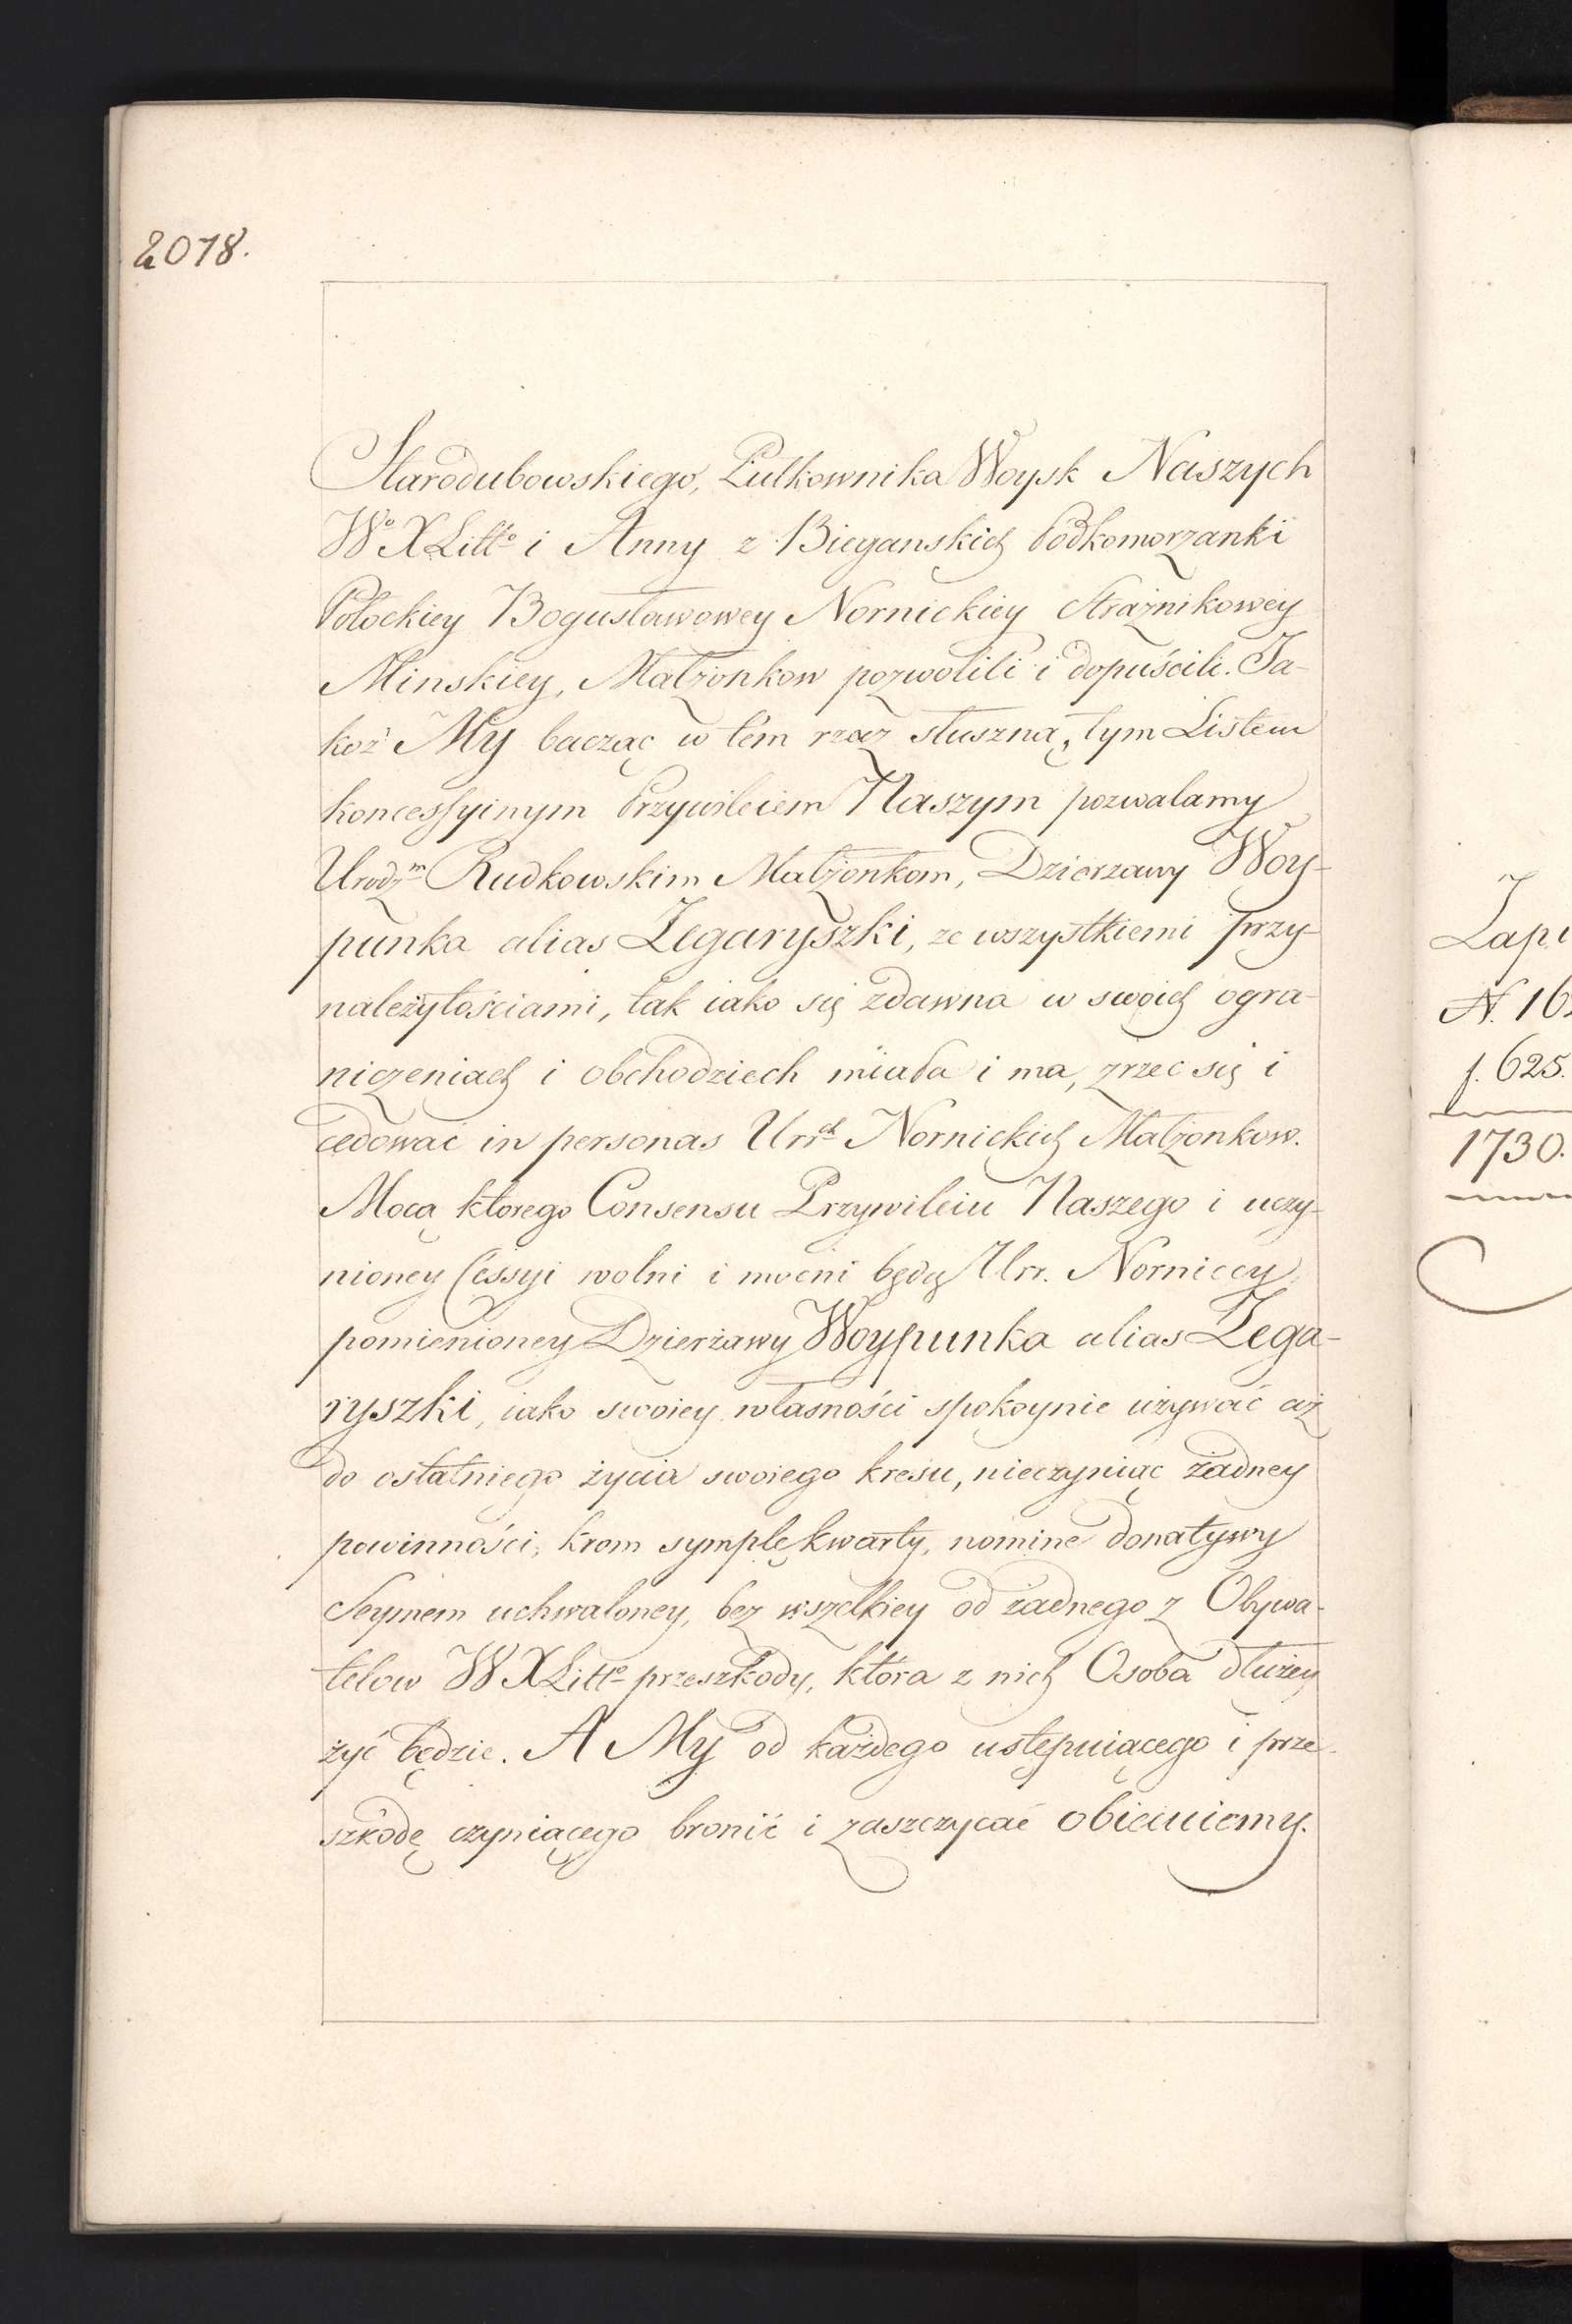 2078.
Starodubowskiego, Pułkownika Woysk Naszych
Wº X Littº i Anny z Bieganskich Podkomorzanki
Połockiey Bogusławowey Nornickiey Strażnikowey
Minskiey, Małżonkow pozwolili i dopuścili. Ja-
koż My bacząc w tém rzecz słuszną, tym Listem
koncessyinym Przywileiem Naszym pozwalamy
Urodzᵐ Rudkowskim Małżonkom, Dzierzawy Woy-
punka alias Zegaryszki, ze wszystkiemi przy-
należytościami, tak iako się zdawna w swoich ogra-
niczeniach i obchodziech miała i ma, zrzec się i
cedować in personas Urrᶜʰ Nornickich Małżonkow.
Mocą ktorego Consensu Przywileiu Naszego i uczy-
nioney Cessyi wolni i mocni będą Urr. Norniccy
pomienioney Dzierżawy Woypunka alias Zega-
ryszki, iako swoiey własności spokoynie używać aż
do ostatniego życia swoiego kresu, nieczyniąc żadney
powinności, krom symplę kwarty, nomine donatywy
Seymem uchwaloney, bez wszelkiey od żadnego z Obywa-
telow W X Littº przeszkody, która z nich Osoba dłużey
żyć będzie. A My od każdego ustępuiącego i prze-
szkodę czyniącego bronić i zaszczycać obiecuiemy.
Zapi
N. 16
f. 625.
1730.